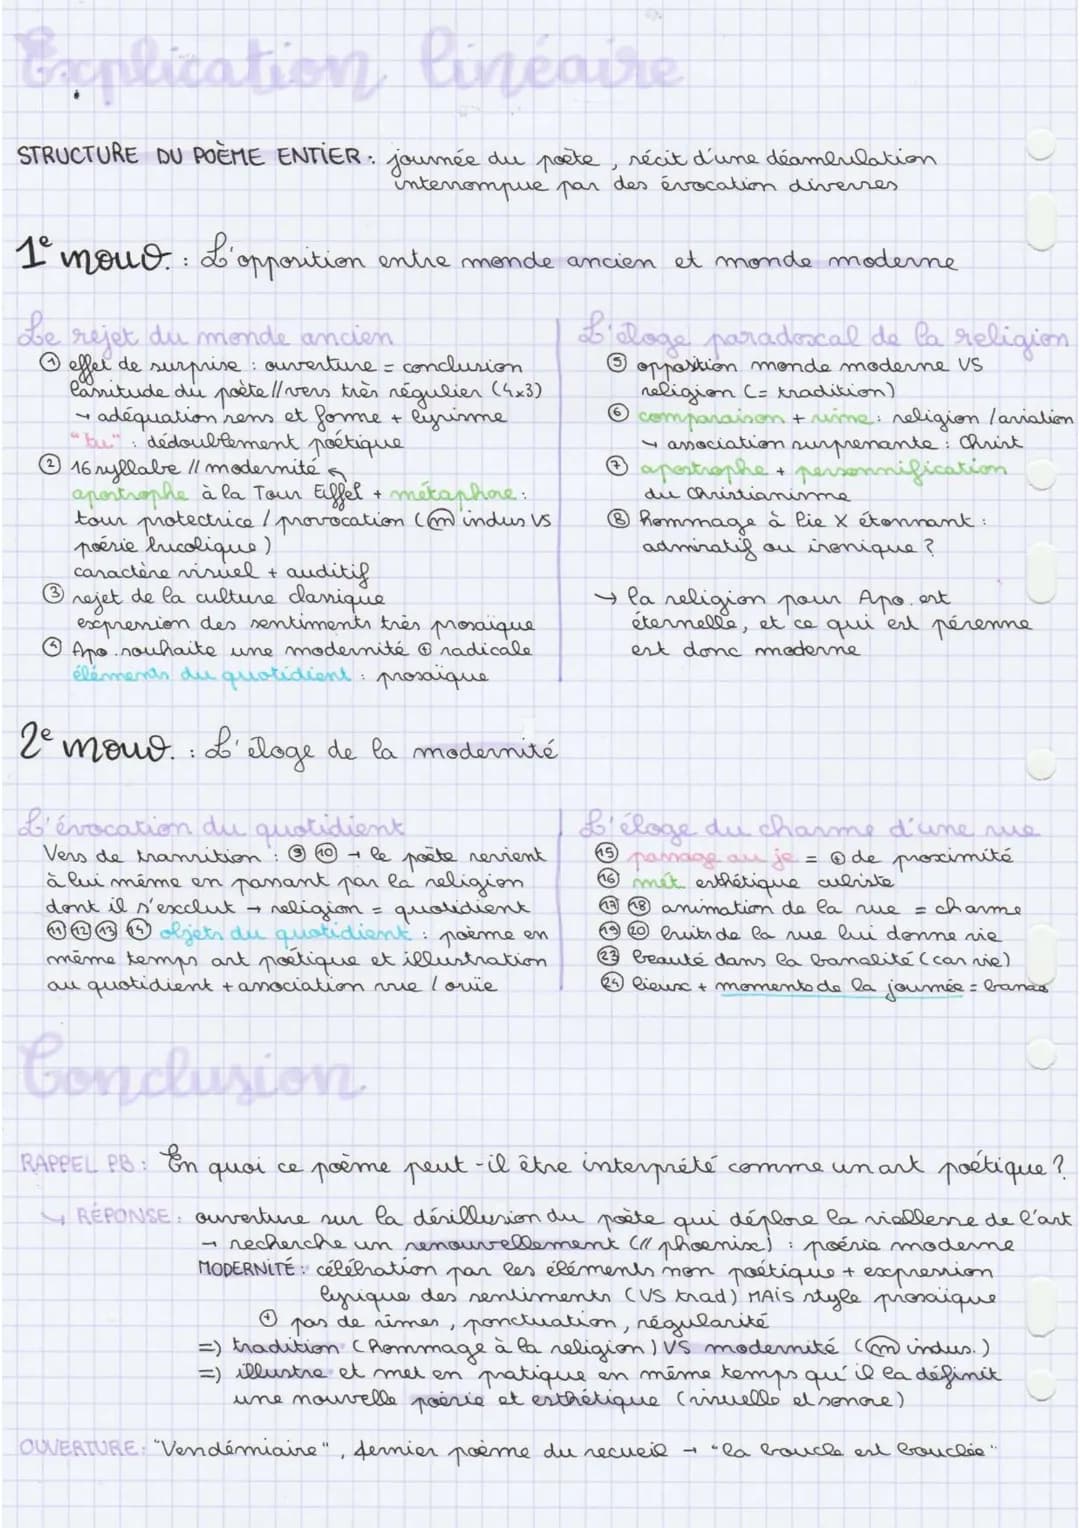 Explication linéaire
STRUCTURE DU POÈME ENTIER : journée du poète, récit d'une déambulation
interrompue par des évocation diverses
1e mouv. : L'opposition entre monde ancien et monde moderne
Le rejet du monde ancien
① effet de surprise : ouverture = conclusion
lassitude du poète // vers très régulier (4x3)
→ adéquation sens et forme + lyrisme
"tu" : dédoublement poétique
② 16 syllabe // modernité
apostrophe à la Tour Eiffel + métaphore :
tour protectrice / provocation (m indus VS
poésie bucolique)
caractère visuel + auditif
③ rejet de la culture classique
expression des sentiments très prosaïque
④ Apo. souhaite une modernité ⊕ radicale
éléments du quotidien : prosaïque
L'éloge paradoxal de la religion
⑤ opposition monde moderne VS
religion (= tradition)
⑥ comparaison + rime : religion / aviation
↘ association surprenante : Christ
⑦ apostrophe + personnification
du Christianisme
⑧ hommage à Pie X étonnant :
admiratif ou ironique ?
→ la religion pour Apo. est
éternelle, et ce qui est pérenne
est donc moderne
2e mouv. : L'éloge de la modernité
L'évocation du quotidient
Vers de transition : ⑨ ⑩ → le poète revient
à lui même en passant par la religion
dont il s'exclut → religion = quotidient
⑪ ⑫ ⑬ ⑭ objets du quotidient : poème en
même temps art poétique et illustration
au quotidient + association vue / ouïe
L'éloge du charme d'une rue
⑮ passage au je = ⊕ de proximité
⑯ mét esthétique cubiste
⑰ ⑱ animation de la rue = charme
⑲ ⑳ bruits de la rue lui donne vie
㉓ beauté dans la banalité (car vie)
㉔ lieux + moments de la journée = banals
Conclusion
RAPPEL PB : En quoi ce poème peut-il être interprété comme un art poétique ?
↘ RÉPONSE : ouverture sur la désillusion du poète qui déplore la viellesse de l'art
→ recherche un renouvellement (// phoenix) : poésie moderne
MODERNITÉ : célébration par les éléments non poétique + expression
lyrique des sentiments (VS trad) MAIS style prosaïque
⊕ pas de rimes, ponctuation, régularité
=) tradition (hommage à la religion) VS modernité (m indus.)
=) illustre et met en pratique en même temps qu'il la définit
une nouvelle poésie et esthétique (visuelle et sonore)
OUVERTURE : "Vendémiaire", dernier poème du recueil → "la boucle est bouclée"